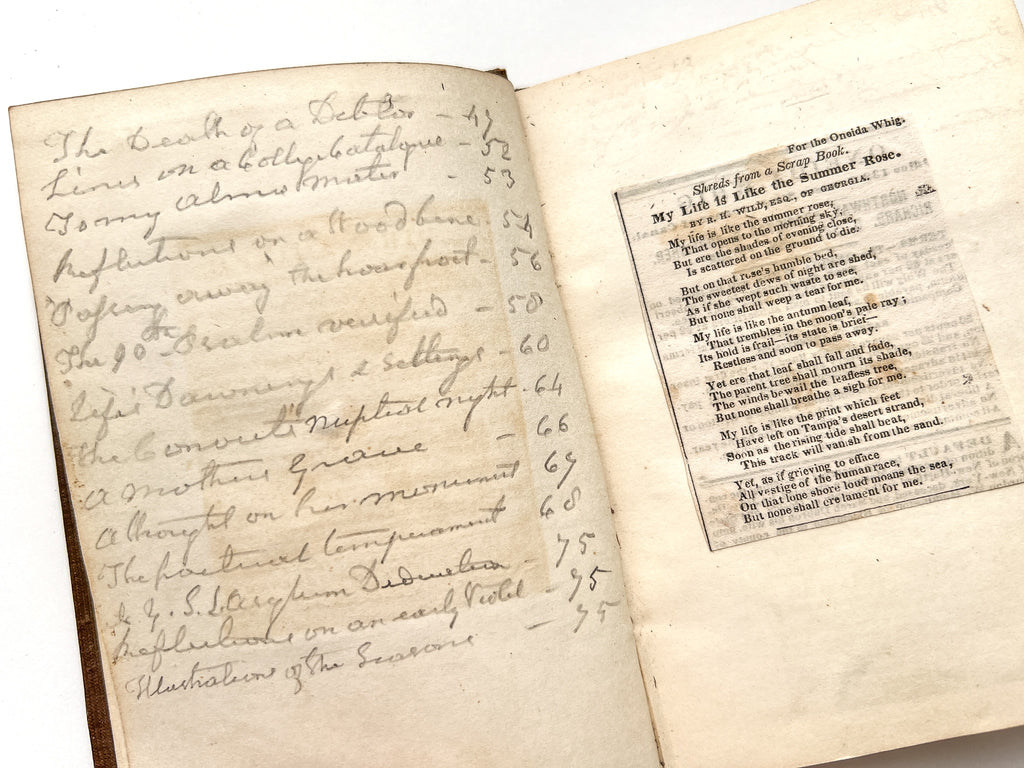 The Death of a Debtor - 47
Lines on a College Catalogue - 52
To my alma mater - 53
Reflections on a Woodbine. 54
Passing away the hoar frost - 56
The 90th Psalm versified - 58
Life's Dawnings & Settings - 60
The convict's nuptial night - 64
A Mothers Grave - 66
A thought on her monument 67
The poetical temperament 68
N. Y. S. L. Asylum Dedication 75.
Reflections on an early Violet - 75
Illustrations of the Seasons - 75
For the Oneida Whig.
Shreds from a Scrap Book.
My Life is Like the Summer Rose.
BY R. H. WILD, ESQ., OF GEORGIA.
My life is like the summer rose,
That opens to the morning sky,
But ere the shades of evening close,
Is scattered on the ground to die.
But on that rose's humble bed,
The sweetest dews of night are shed,
As if she wept such waste to see,
But none shall weep a tear for me.
My life is like the autumn leaf,
That trembles in the moon's pale ray;
Its hold is frail—its state is brief—
Restless and soon to pass away.
Yet ere that leaf shall fall and fade,
The parent tree shall mourn its shade,
The winds bewail the leafless tree,
But none shall breathe a sigh for me.
My life is like the print which feet
Have left on Tampa's desert strand,
Soon as the rising tide shall beat,
This track will vanish from the sand.
Yet, as if grieving to efface
All vestige of the human race,
On that lone shore loud moans the sea,
But none shall ere lament for me.